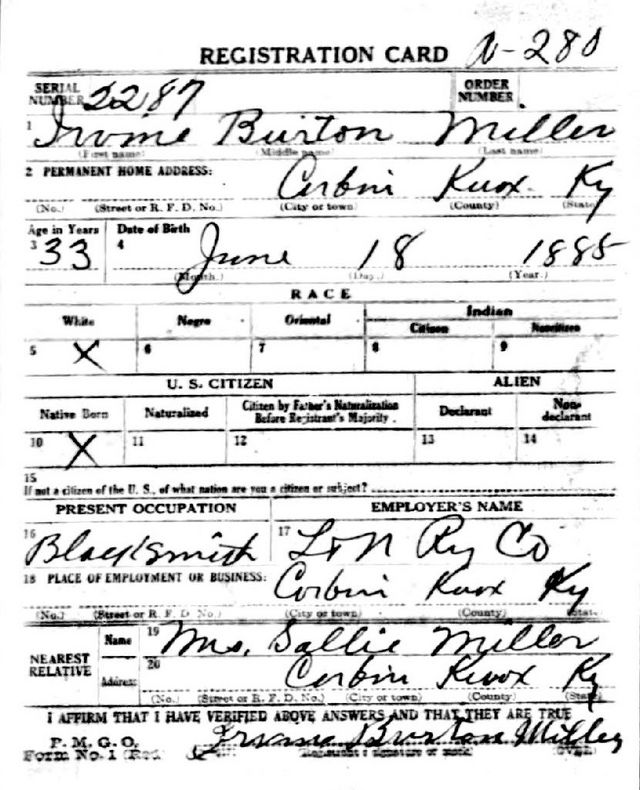 REGISTRATION CARD A-280
SERIAL NUMBER 2287 ORDER NUMBER
1 Irvine Burton Miller
(First name) (Middle name) (Last name)
2 PERMANENT HOME ADDRESS: Corbin Knox Ky
(No.) (Street or R. F. D. No.) (City or town) (County) (State)
Age in Years Date of Birth
3 33 4 June 18 1885
(Month.) (Day.) (Year.)
RACE
White Negro Oriental Indian
Citizen Noncitizen
5 X 6 7 8 9
U. S. CITIZEN ALIEN
Native Born Naturalized Citizen by Father's Naturalization Before Registrant's Majority Declarant Non-declarant
10 X 11 12 13 14
15
If not a citizen of the U. S., of what nation are you a citizen or subject?
PRESENT OCCUPATION EMPLOYER'S NAME
16 Blacksmith 17 L&N Ry Co
18 PLACE OF EMPLOYMENT OR BUSINESS: Corbin Knox Ky
(No.) (Street or R. F. D. No.) (City or town) (County) (State)
NEAREST RELATIVE Name 19 Mrs. Sallie Miller
Address 20 Corbin Knox Ky
(No.) (Street or R. F. D. No.) (City or town) (County) (State)
I AFFIRM THAT I HAVE VERIFIED ABOVE ANSWERS AND THAT THEY ARE TRUE
P. M. G. O.
Form No. 1 (Red) Irvine Burton Miller
(Registrant's signature or mark) (OVER)